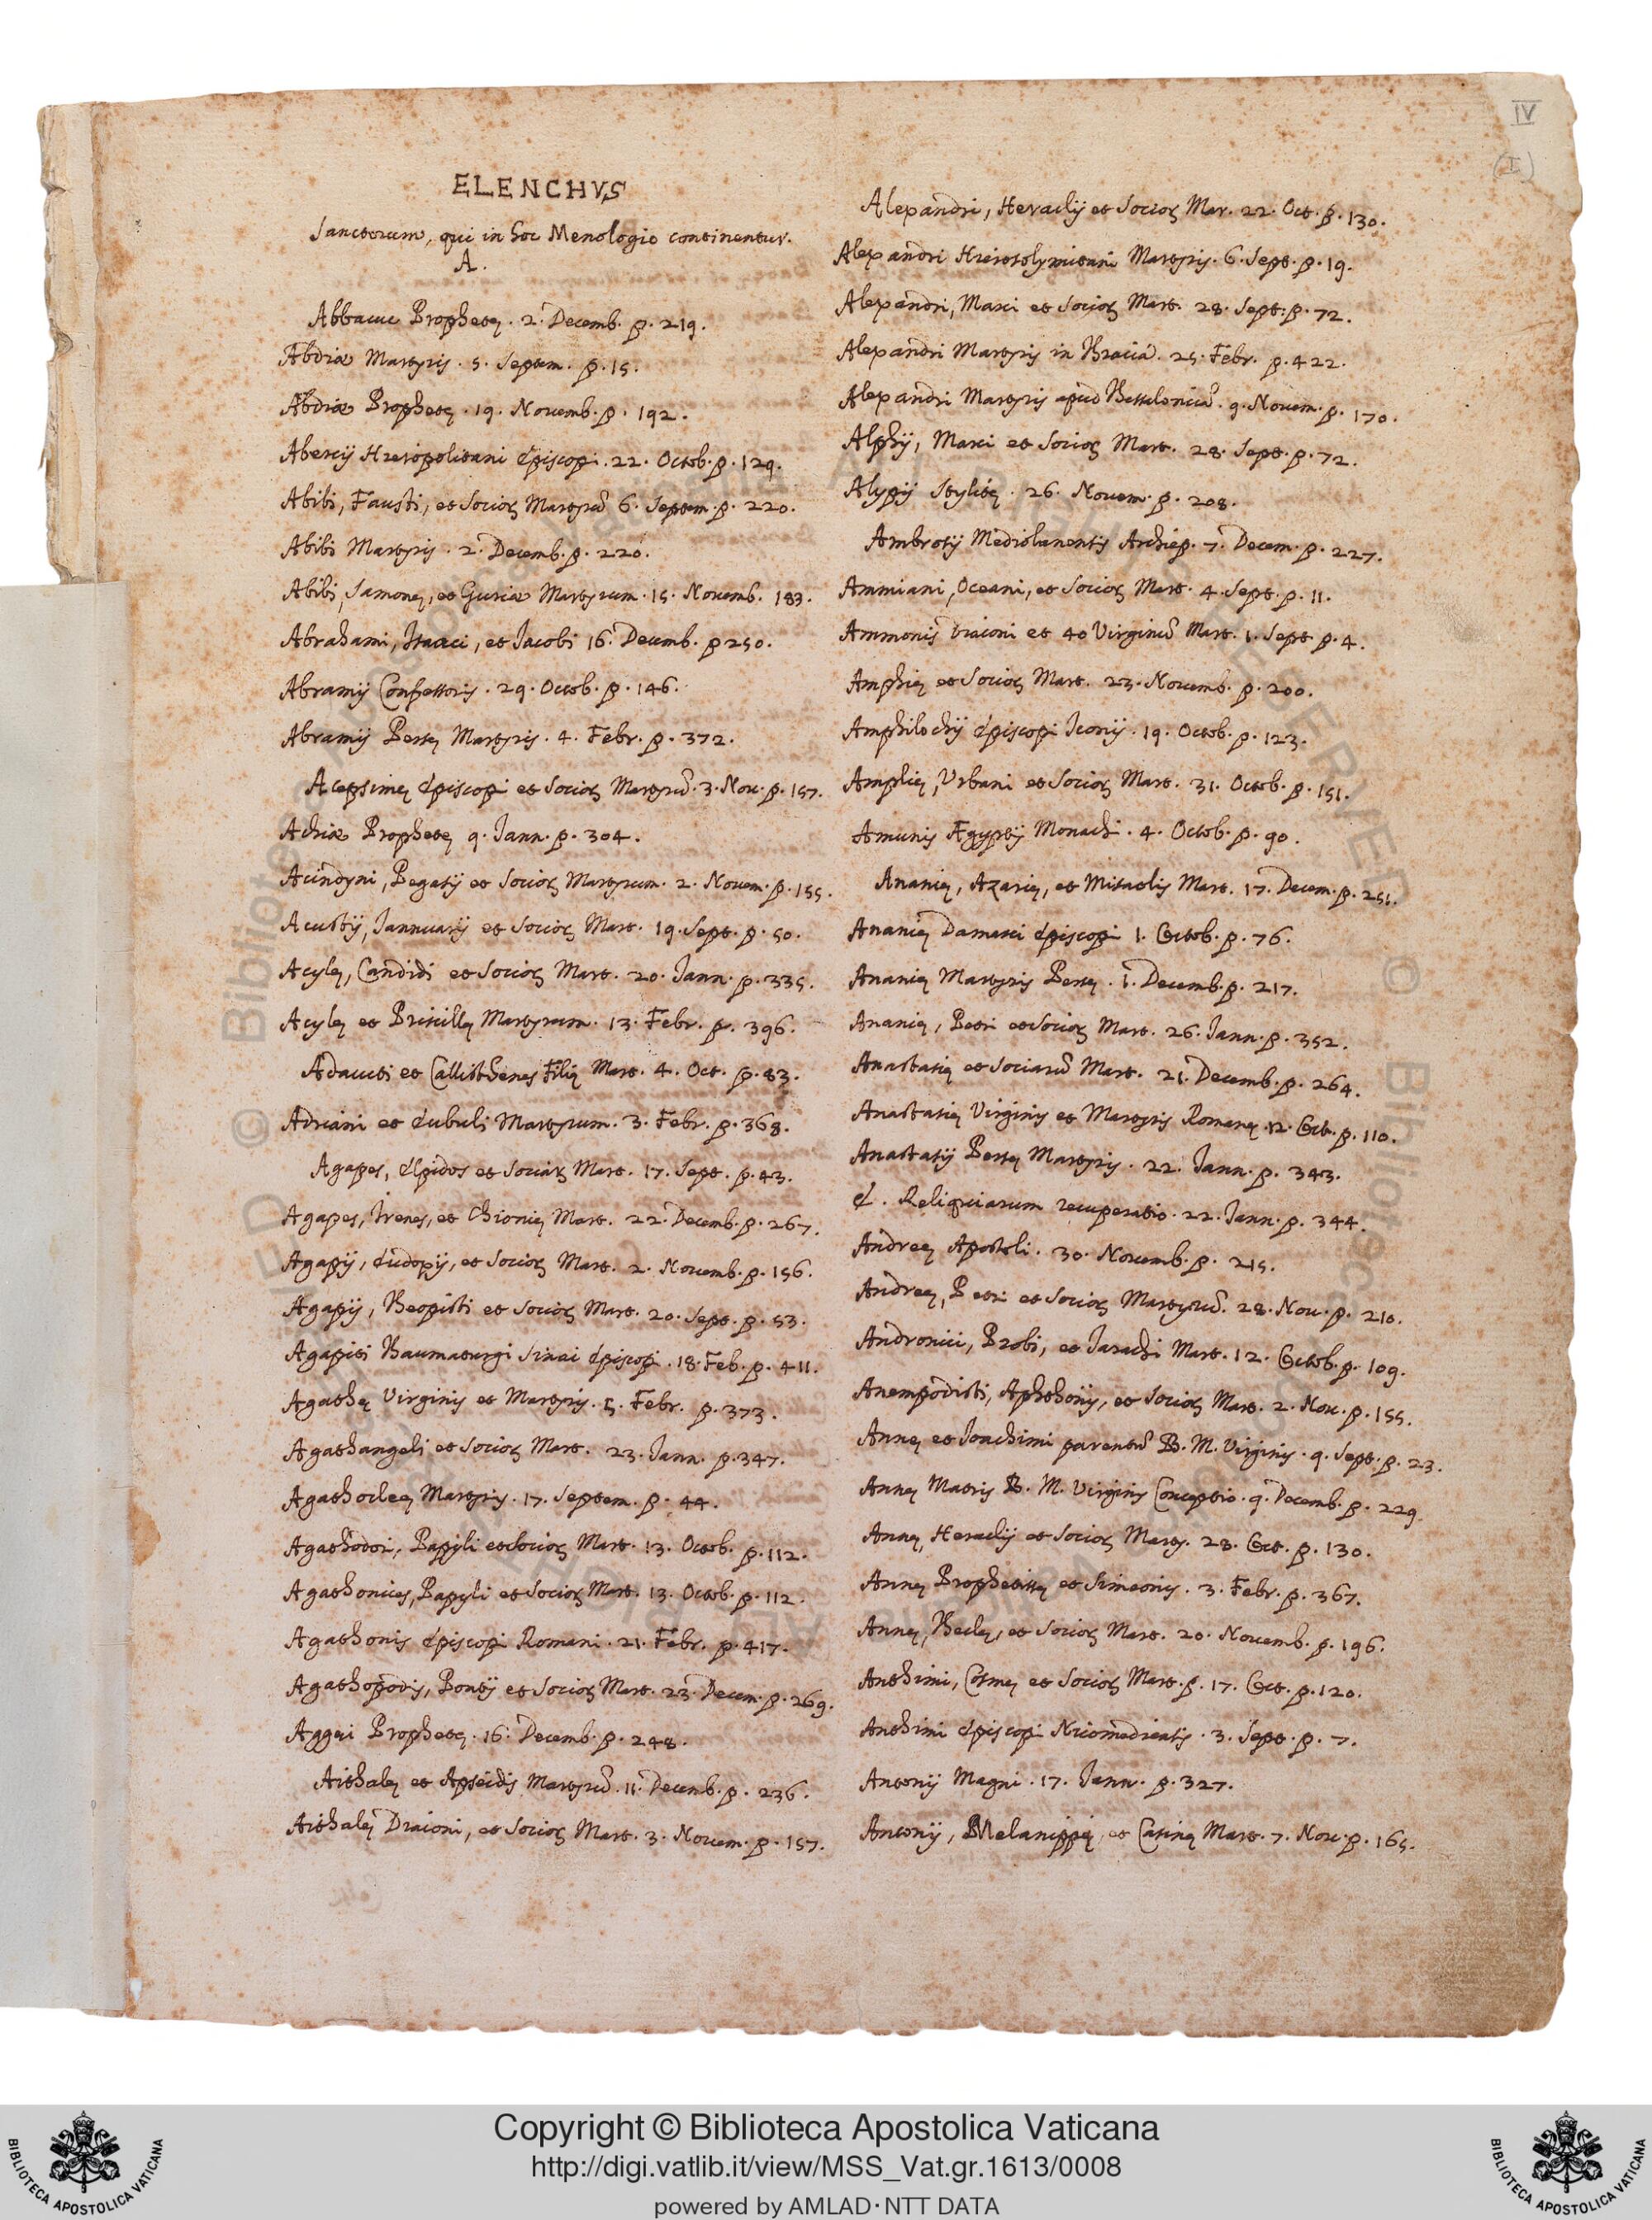 IV
(I)
ELENCHVS
Sanctorum, qui in hoc Menologio continentur.
A.
Abbacuc Prophetę. 2. Decemb. p. 219.
Abdiæ Martyris. 5. Septem. p. 15.
Abdiæ Prophetę. 19. Novemb. p. 192.
Abercij Hieropolitani Episcopi. 22. Octob. p. 129.
Abibi, Fausti, et Socioꝝ Martyrũ 6. Septem. p. 220.
Abibi Martyris. 2. Decemb. p. 220.
Abibi, Samonę, et Guriæ Martyrum. 15. Novemb. 183.
Abrahami, Isaaci, et Jacobi 16. Decemb. p 250.
Abramij Confessoris. 29. Octob. p. 146.
Abramij Persę Martyris. 4. Febr. p. 372.
Acepsimę Episcopi et Socioꝝ Martyrũ. 3. Nov. p. 157.
Achiæ Prophetę 9. Jann. p. 304.
Acindyni, Pegasij et Socioꝝ Martyrum. 2. Novem. p. 155.
Acustij, Jannuarij et Socioꝝ Mart. 19. Sept. p. 50.
Acylę, Candidi et Socioꝝ Mart. 20. Jann. p. 335.
Acylę et Priscillę Martyrum. 13. Febr. p. 396.
Adaucti et Callisthenes Filię Mart. 4. Oct. p. 83.
Adriani et Eubuli Martyrum. 3. Febr. p. 368.
Agapes, Elpidos et Sociaꝝ Mart. 17. Sept. p. 43.
Agapes, Irenes, et Chionię Mart. 22. Decemb. p. 267.
Agapij, Eudopij, et Socioꝝ Mart. 2. Novemb. p. 156.
Agapij, Theopisti et Socioꝝ Mart. 20. Sept. p. 53.
Agapiti Thaumaturgi Sinai Episcopi. 18. Feb. p. 411.
Agathę Virginis et Martyris. 5. Febr. p. 373.
Agathangeli et Socioꝝ Mart. 23. Jann. p. 347.
Agathocleę Martyris. 17. Septem. p. 44.
Agathodori, Papyli et Socioꝝ Mart. 13. Octob. p. 112.
Agathonices, Papyli et Socioꝝ Mart. 13. Octob. p. 112.
Agathonis Episcopi Romani. 21. Febr. p. 417.
Agathopodis, Pontij et Socioꝝ Mart. 23. Decem. p. 269.
Aggęi Prophetę. 16. Decemb. p. 248.
Aithalę et Apseidis Martyrũ. 11. Decemb. p. 236.
Aithalę Diaconi, et Socioꝝ Mart. 3. Novem. p. 157.
Alexandri, Heraclij et Socioꝝ Mar. 22. Oct. p. 130.
Alexandri Hierosolymitani Martyris. 6. Sept. p. 19.
Alexandri, Marci et Socioꝝ Mart. 28. Sept. p. 72.
Alexandri Martyris in Thracia. 25. Febr. p. 422.
Alexandri Martyris apud Thessalonicã. 9. Novem. p. 170.
Alphij, Marci et Socioꝝ Mart. 28. Sept. p. 72.
Alypij Stylitę. 26. Novem. p. 208.
Ambrosij Mediolanensis Archiep. 7. Decem. p. 227.
Ammiani, Oceani, et Socioꝝ Mart. 4. Sept. p. 11.
Ammonis Diaconi et 40 Virginũ Mart. 1. Sept p. 4.
Amphię et Socioꝝ Mart. 23. Novemb. p. 200.
Amphilochij Episcopi Iconij. 19. Octob. p. 123.
Amplię, Urbani et Socioꝝ Mart. 31. Octob. p. 151.
Amunis Ægyptij Monachi. 4. Octob. p. 90.
Ananię, Azarię, et Misaelis Mart. 17. Decem. p. 251.
Ananię Damasci Episcopi 1. Octob. p. 76.
Ananię Martyris Persę. 1. Decemb. p. 217.
Ananię, Petri et Socioꝝ Mart. 26. Jann. p. 352.
Anastasię et Sociarũ Mart. 21. Decemb. p. 264.
Anastasię Virginis et Martyris Romanę. 12. Oct. p. 110.
Anastasij Persę Martyris. 22. Jann. p. 343.
E. Reliquiarum recuperatio. 22. Jann. p. 344.
Andreę Apostoli. 30. Novemb. p. 215.
Andreę, Petri et Socioꝝ Martyrũ. 28. Nov. p. 210.
Andronici, Probi, et Tarachi Mart. 12. Octob. p. 109.
Anempodisti, Aphthonij, et Socioꝝ Mart. 2. Nov. p. 155.
Annę et Joachimi parentũ B. M. Virginis. 9. Sept. p. 23.
Annę Matris B. M. Virginis Conceptio. 9. Decemb. p. 229.
Annę, Heraclij et Socioꝝ Marty. 28. Oct. p. 130.
Annę Prophetissę et Simeonis. 3. Febr. p. 367.
Annę, Theclę, et Socioꝝ Mart. 20. Novemb. p. 196.
Anthimi, Cosmę et Socioꝝ Mart. p. 17. Oct. p. 120.
Anthimi Episcopi Nicomediensis. 3. Sept. p. 7.
Antonij Magni. 17. Jann. p. 327.
Antonij, Melanippę, et Casinę Mart. 7. Nov. p. 165.
Copyright © Biblioteca Apostolica Vaticana
http://digi.vatlib.it/view/MSS_Vat.gr.1613/0008
powered by AMLAD·NTT DATA
BIBLIOTECA APOSTOLICA VATICANA
BIBLIOTECA APOSTOLICA VATICANA